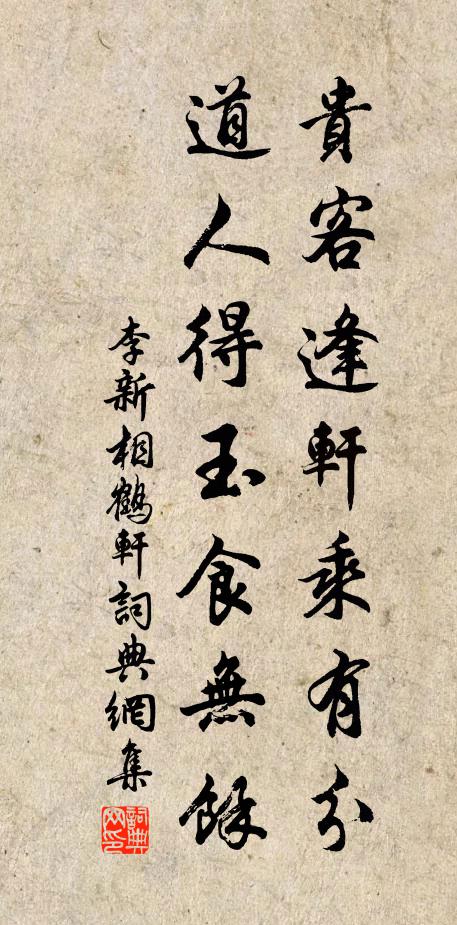 貴客逢軒乘有分
道人得玉食無餘
李新相鶴軒詞典網集
詞典网印